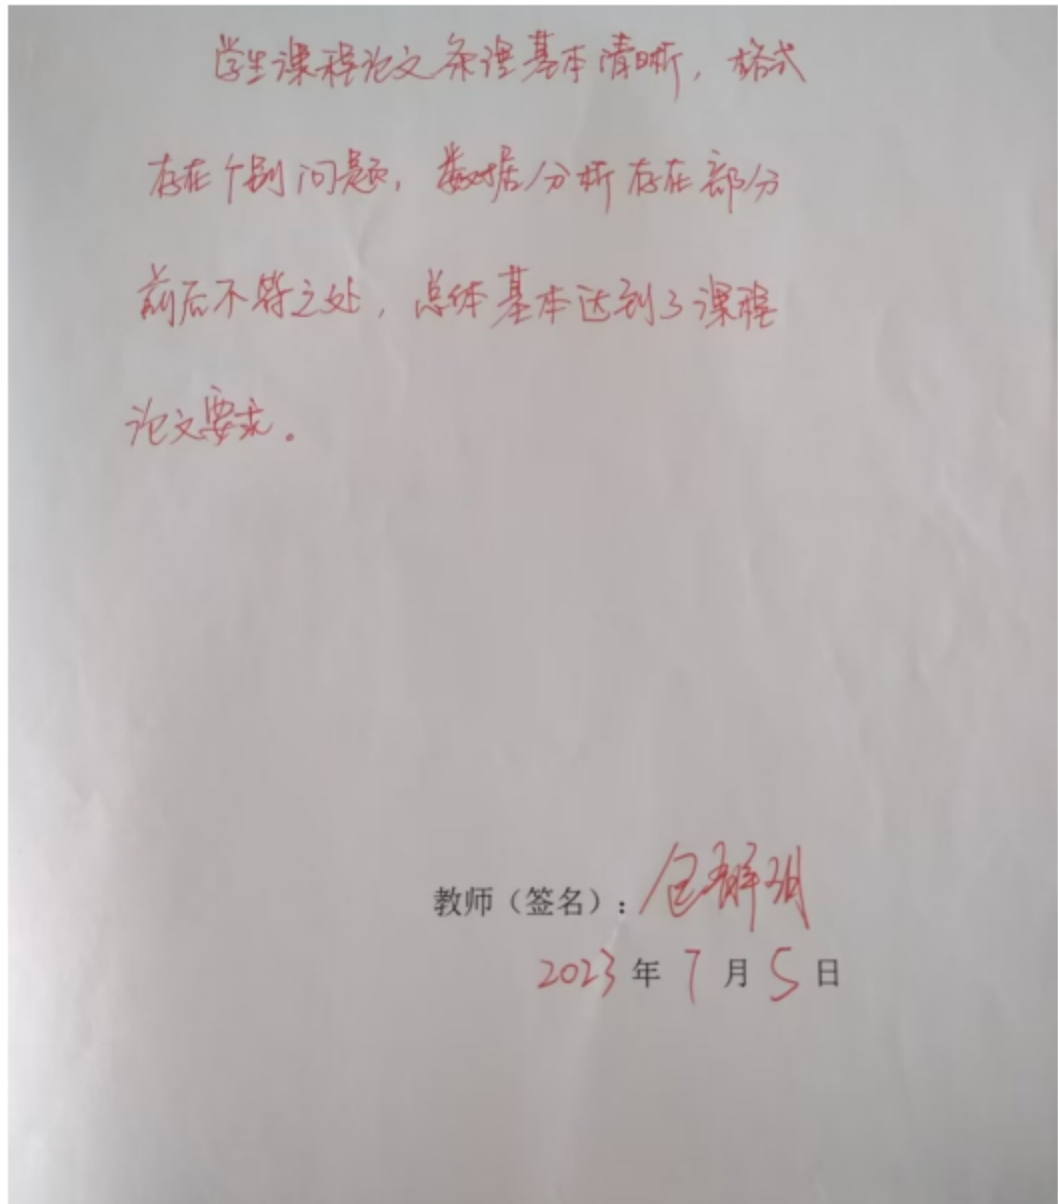 学生课程论文条理基本清晰，格式
存在个别问题，数据分析存在部分
前后不符之处，总体基本达到了课程
论文要求。
教师（签名）：
2023年7月5日